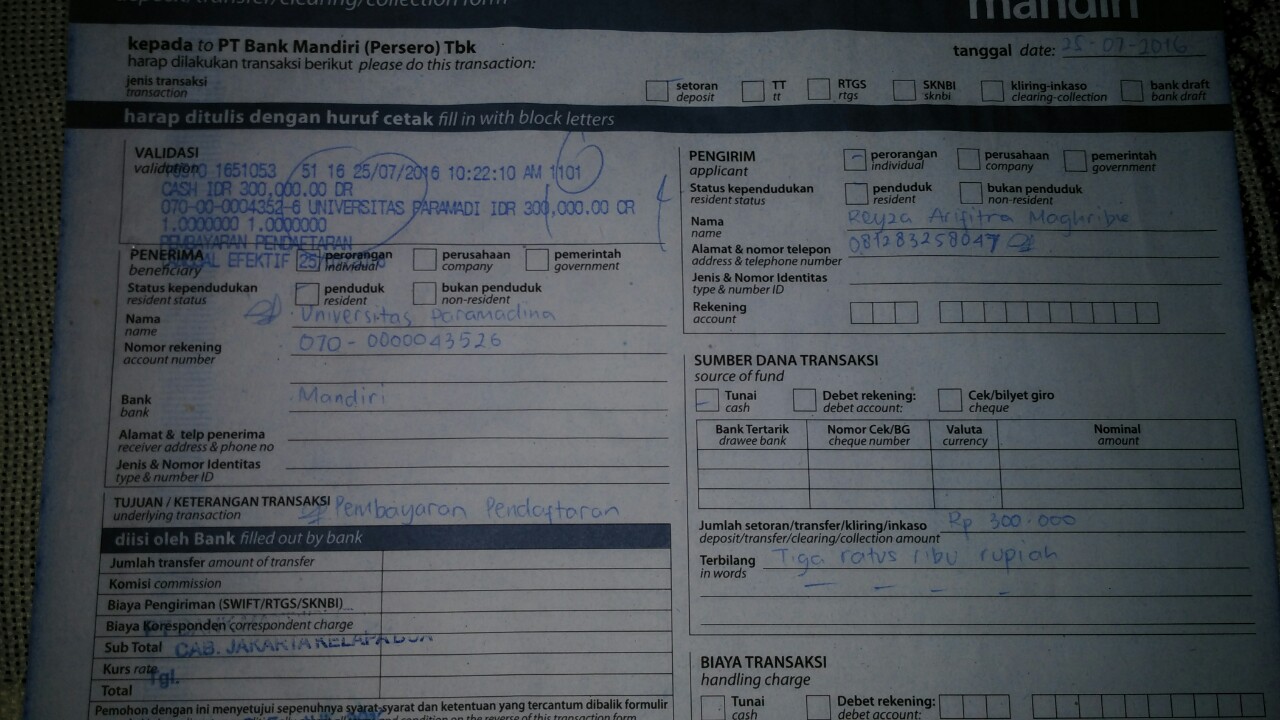 deposit/transfer/clearing/collection form
mandiri
kepada to PT Bank Mandiri (Persero) Tbk
harap dilakukan transaksi berikut please do this transaction:
tanggal date: 25-07-2016
jenis transaksi
transaction
setoran
deposit
TT
tt
RTGS
rtgs
SKNBI
sknbi
kliring-inkaso
clearing-collection
bank draft
bank draft
harap ditulis dengan huruf cetak fill in with block letters
VALIDASI
validation
1651053 51 16 25/07/2016 10:22:10 AM 1101
CASH IDR 300,000.00 DR
070-00-0004352-6 UNIVERSITAS PARAMADI IDR 300,000.00 CR
1.0000000 1.0000000
PEMBAYARAN PENDAFTARAN
EFEKTIF 25
PENERIMA
beneficiary
perorangan
individual
perusahaan
company
pemerintah
government
Status kependudukan
resident status
penduduk
resident
bukan penduduk
non-resident
Nama
name
Universitas Paramadina
Nomor rekening
account number
070-0000043526
Bank
bank
Mandiri
Alamat & telp penerima
receiver address & phone no
Jenis & Nomor Identitas
type & number ID
TUJUAN / KETERANGAN TRANSAKSI
underlying transaction
Pembayaran Pendaftaran
diisi oleh Bank filled out by bank
Jumlah transfer amount of transfer
Komisi commission
Biaya Pengiriman (SWIFT/RTGS/SKNBI)
Biaya Koresponden correspondent charge
Sub Total
CAB. JAKARTA KELAPA DUA
Kurs rate
Tgl.
Total
Pemohon dengan ini menyetujui sepenuhnya syarat-syarat dan ketentuan yang tercantum dibalik formulir
condition on the reverse of this transaction form
PENGIRIM
applicant
perorangan
individual
perusahaan
company
pemerintah
government
Status kependudukan
resident status
penduduk
resident
bukan penduduk
non-resident
Nama
name
Reyza Arifitra Maghribie
Alamat & nomor telepon
address & telephone number
081283258047
Jenis & Nomor Identitas
type & number ID
Rekening
account
SUMBER DANA TRANSAKSI
source of fund
Tunai
cash
Debet rekening:
debet account:
Cek/bilyet giro
cheque
Bank Tertarik
drawee bank
Nomor Cek/BG
cheque number
Valuta
currency
Nominal
amount
Jumlah setoran/transfer/kliring/inkaso
deposit/transfer/clearing/collection amount
Rp 300.000
Terbilang
in words
Tiga ratus ribu rupiah
BIAYA TRANSAKSI
handling charge
Tunai
cash
Debet rekening:
debet account: